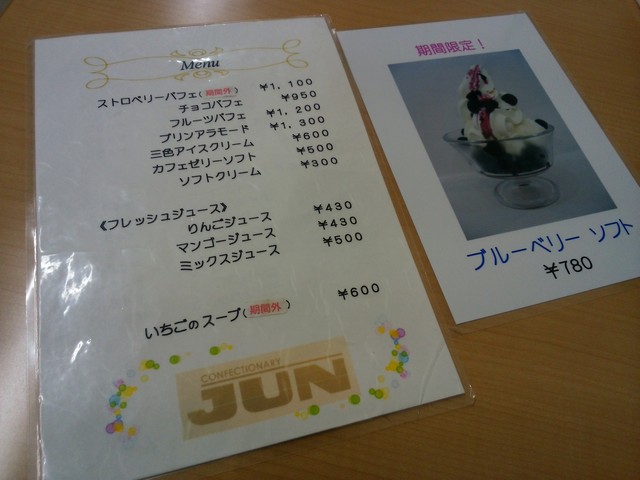 Menu
ストロベリーパフェ(期間外) ￥1,100
チョコパフェ ￥950
フルーツパフェ ￥1,200
プリンアラモード ￥1,300
三色アイスクリーム ￥600
カフェゼリーソフト ￥500
ソフトクリーム ￥300
《フレッシュジュース》
りんごジュース ￥430
マンゴージュース ￥430
ミックスジュース ￥500
いちごのスープ(期間外) ￥600
CONFECTIONARY
JUN
期間限定！
ブルーベリー ソフト
￥780